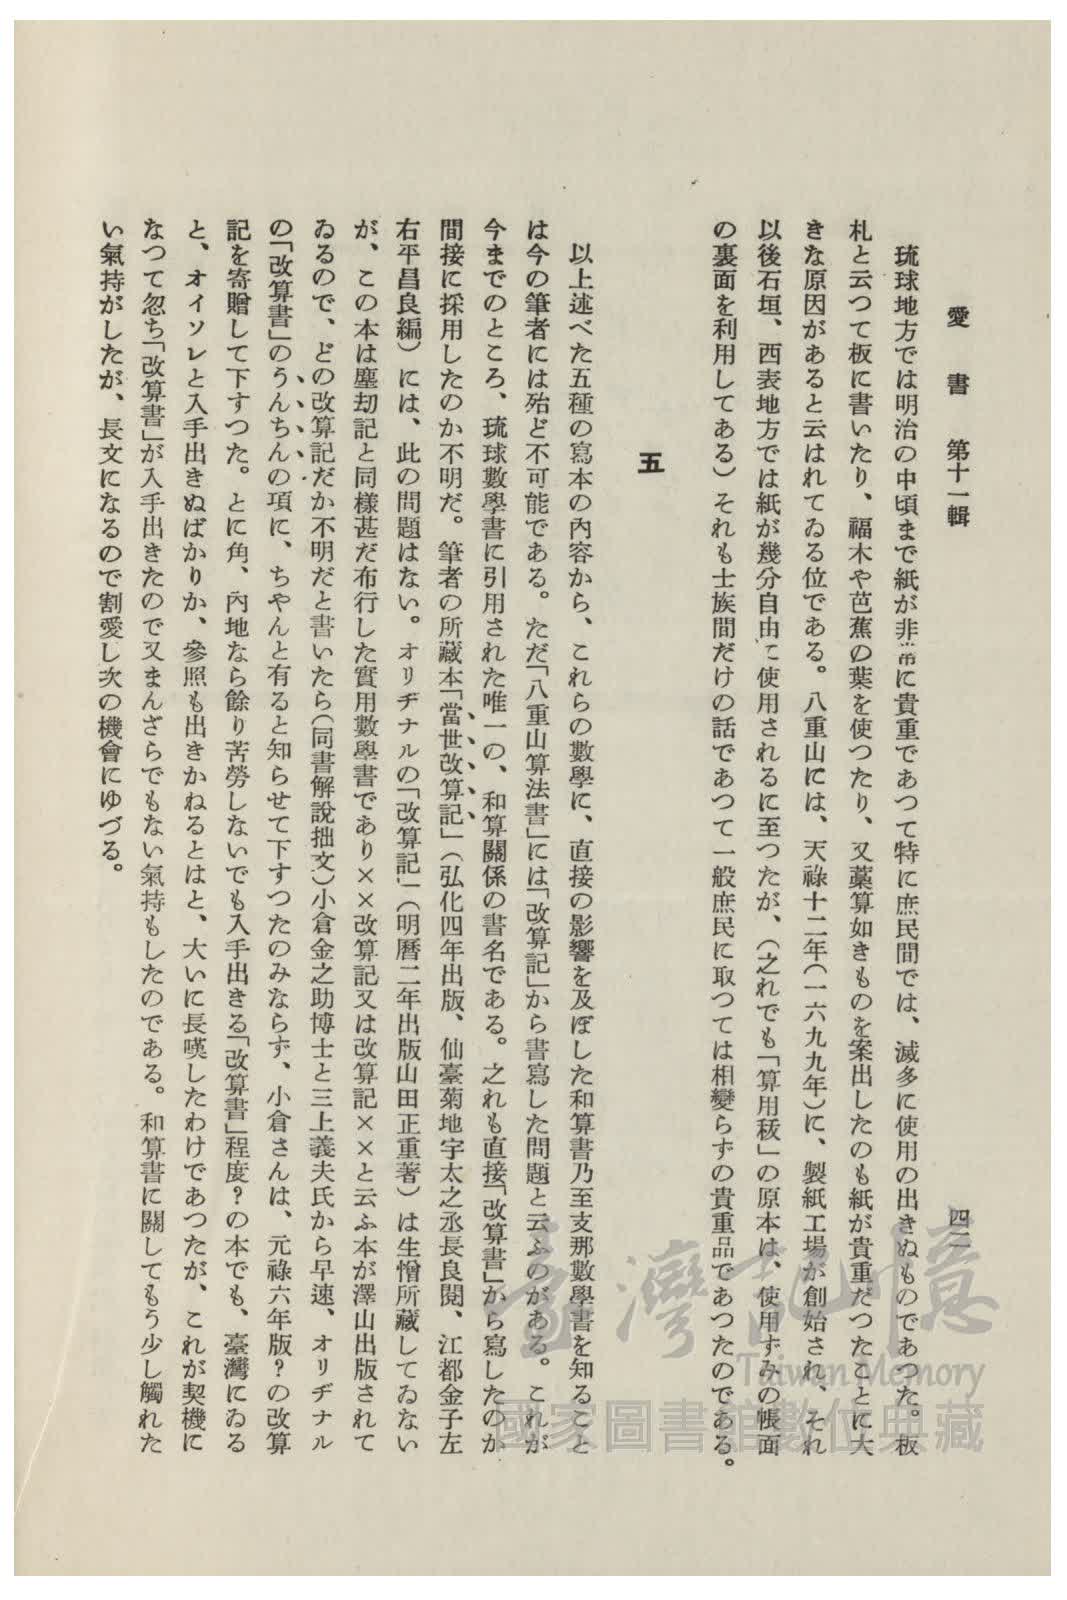 愛書 第十一輯
四二
琉球地方では明治の中頃まで紙が非常に貴重であつて特に庶民間では、滅多に使用の出きぬものであつた。板
札と云つて板に書いたり、福木や芭蕉の葉を使つたり、又藁算如きものを案出したのも紙が貴重だつたことに大
きな原因があると云はれてゐる位である。八重山には、天祿十二年(一六九九年)に、製紙工場が創始され、それ
以後石垣、西表地方では紙が幾分自由に使用されるに至つたが、(之れでも「算用帳」の原本は、使用ずみの帳面
の裏面を利用してある)それも士族間だけの話であつて一般庶民に取つては相變らずの貴重品であつたのである。
五
以上述べた五種の寫本の內容から、これらの數學に、直接の影響を及ぼした和算書乃至支那數學書を知ること
は今の筆者には殆ど不可能である。ただ「八重山算法書」には「改算記」から書寫した問題と云ふのがある。これが
今までのところ、琉球數學書に引用された唯一の、和算關係の書名である。之れも直接「改算書」から寫したのか
間接に採用したのか不明だ。筆者の所藏本「當世改算記」(弘化四年出版、仙臺菊地宇太之丞長良閱、江都金子左
右平昌良編)には、此の問題はない。オリヂナルの「改算記」(明曆二年出版山田正重著)は生憎所藏してゐない
が、この本は塵劫記と同樣甚だ布行した實用數學書であり××改算記又は改算記××と云ふ本が澤山出版されて
ゐるので、どの改算記だか不明だと書いたら(同書解說拙文)小倉金之助博士と三上義夫氏から早速、オリヂナル
の「改算書」のうんちんの項に、ちやんと有ると知らせて下すつたのみならず、小倉さんは、元祿六年版?の改算
記を寄贈して下すつた。とに角、內地なら餘り苦勞しないでも入手出きる「改算書」程度?の本でも、臺灣にゐる
と、オイソレと入手出きぬばかりか、參照も出きかねるとはと、大いに長嘆したわけであつたが、これが契機に
なつて忽ち「改算書」が入手出きたので又まんざらでもない氣持もしたのである。和算書に關してもう少し觸れた
い氣持がしたが、長文になるので割愛し次の機會にゆづる。
臺灣記憶
Taiwan Memory
國家圖書館數位典藏